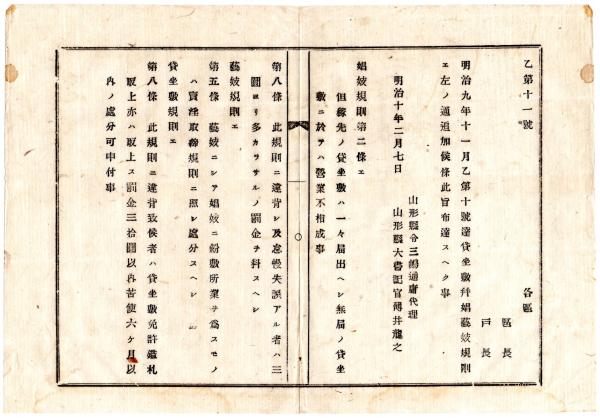 乙第十一號
各區
區長
戸長
明治九年十一月乙第十號達貸坐敷幷娼藝妓規則
エ左ノ通追加候條此旨布達スヘク事
明治十年二月七日
山形縣令三島通庸代理
山形縣大書記官薄井龍之
娼妓規則第二條エ
但稼先ノ貸坐敷ハ一々届出ヘシ無届ノ貸坐
敷ニ於テハ營業不相成事
第八條 此規則ニ違背シ及怠慢失誤アル者ハ三
圓ヨリ多カラサルノ罰金ヲ科スヘシ
藝妓規則エ
第五條 藝妓ニシテ娼妓ニ紛敷所業ヲ爲スモノ
ハ賣淫取締規則ニ照シ處分スヘシ
貸坐敷規則エ
第八條 此規則ニ違背致候者ハ貸坐敷免許鑑札
取上亦ハ取上ス罰金三拾圓以內苦使六ケ月以
內ノ處分可申付事